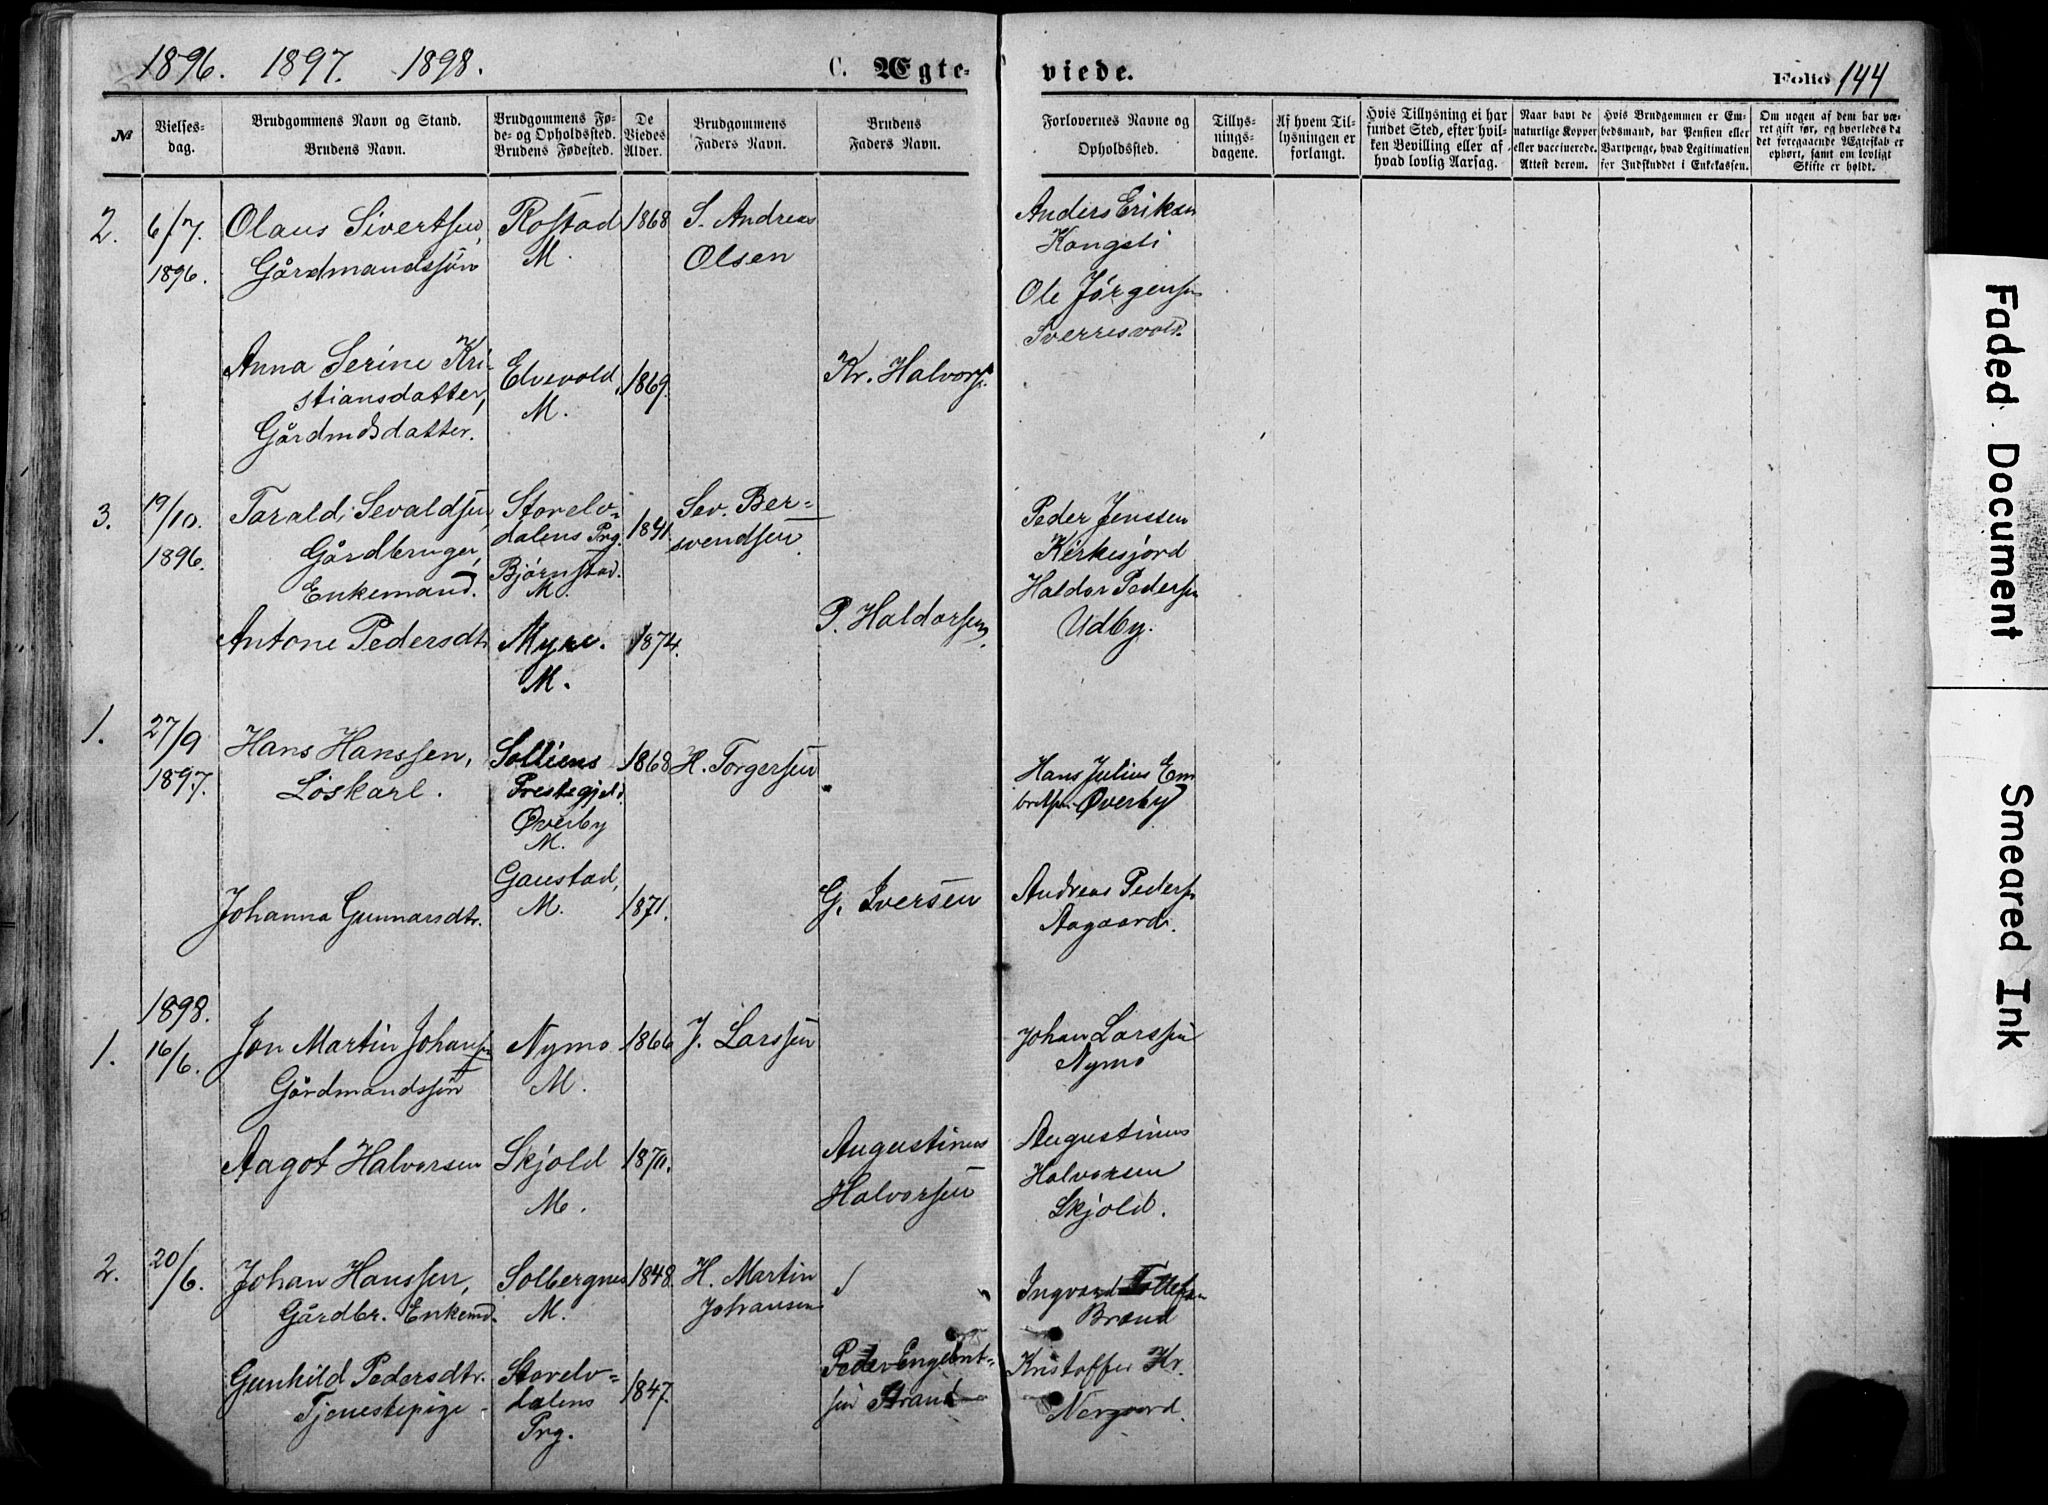 1896. 1897. 1898.
C. Ægte-
viede.
Folio 144
№
Vielses-
dag.
Brudgommens Navn og Stand.
Brudens Navn.
Brudgommens Fø-
de- og Opholdssted.
Brudens Fødested.
De
Viedes
Alder.
Brudgommens
Faders Navn.
Brudens
Faders Navn.
Forlovernes Navne og
Opholdssted.
Tillys-
nings-
dagene.
Af hvem Til-
lysningen er
forlangt.
Hvis Tillysning ei har
fundet Sted, efter hvil-
ken Bevilling eller af
hvad lovlig Aarsag.
Naar havt de
naturlige Kopper
eller vaccinerede.
Attest derom.
Hvis Brudgommen er Em-
bedsmand, har Pension eller
Vartpenge, hvad Legitimation
for Indskuddet i Enkekassen.
Om nogen af dem har væ-
ret gift før, og hvorledes da
det foregaaende Ægteskab er
ophørt, samt om lovligt
Skifte er holdt.
2.
6/7.
1896.
Olaus Sivertsen,
Gårdmandssøn
Rostad
M.
1868
S. Andreas
Olsen
Anders Eriksen
Kongsli
Ole Jørgensen
Sverresvold.
Anna Serine Kri-
stiansdatter,
Gårdmdsdatter.
Elvevold,
M.
1869.
Kr. Halvors.
3.
19/10.
1896.
Tarald Sevaldsen,
Gårdbruger,
Enkemand.
Storelv-
dalens Prg.
Bjørnstad.
M.
1841.
Sev. Ber-
svendsen
Peder Jenssen
Kirkesjord
Haldor Pedersen
Udby.
Antone Pedersdt.
Myre.
M.
1874.
P. Haldorsen,
1.
27/9
1897.
Hans Hanssen,
Løskarl.
Solliens
Prestegjeld.
Øverby
M.
1868
H. Torgersen
Hans Julius Em
bretsen Øverby
Johanna Gunnarsdtr.
Gaustad,
M.
1871.
G. Iversen
Andreas Peders.
Aagaard.
1898.
1.
16/6.
Jon Martin Johansen
Gårdmandssøn
Nymo
M.
1866
J. Larssen
Johan Larssen
Nymo
Aagot Halvorsen
Skjold
M.
1870.
Augustinus
Halvorsen
Augustinus
Halvorsen
Skjold.
2.
20/6.
Johan Hanssen,
Gårdbr. Enkemd.
Solbergnes
M.
1848.
H. Martin
Johansen
Ingvard Tollefsen
Brænd
Gunhild Pedersdtr.
Tjenestepige
Storelv-
dalens
Prg.
1847.
Peder Engebret-
sen Strand
Kristoffer Kr.
Nergaard.
Faded Document
Smeared Ink